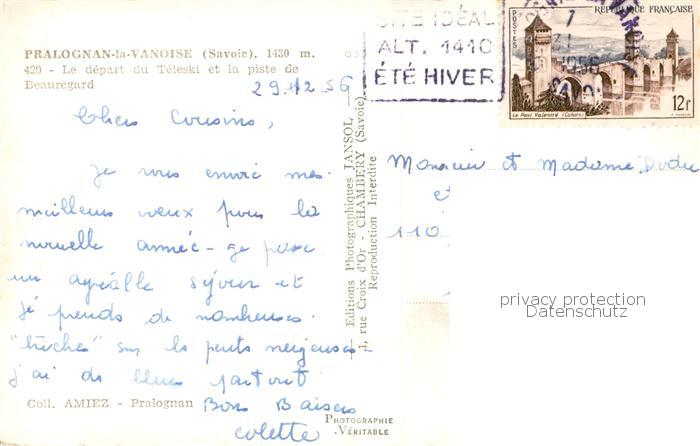 PRALOGNAN-la-VANOISE (Savoie), 1430 m.
420 - Le départ du Téleski et la piste de
Beauregard
29.12.56
Chers Cousins,
Je vous envoie mes
meilleurs voeux pour la
nouvelle année - je passe
un agréable séjour et
je prends de nombreuses
"bûches" sur les pentes neigeuses -
j'ai des bleus partout
Bons Baisers
Colette
Coll. AMIEZ - Pralognan
PHOTOGRAPHIE
VÉRITABLE
Editions Photographiques JANSOL
1, rue Croix d'Or - CHAMBÉRY (Savoie)
Reproduction Interdite
SITE IDÉAL
ALT. 1410
ÉTÉ HIVER
7
31
1956
POSTES
RÉPUBLIQUE FRANÇAISE
Le Pont Valentré (Cahors)
12f
Monsieur et Madame Dodu
et
110
privacy protection
Datenschutz